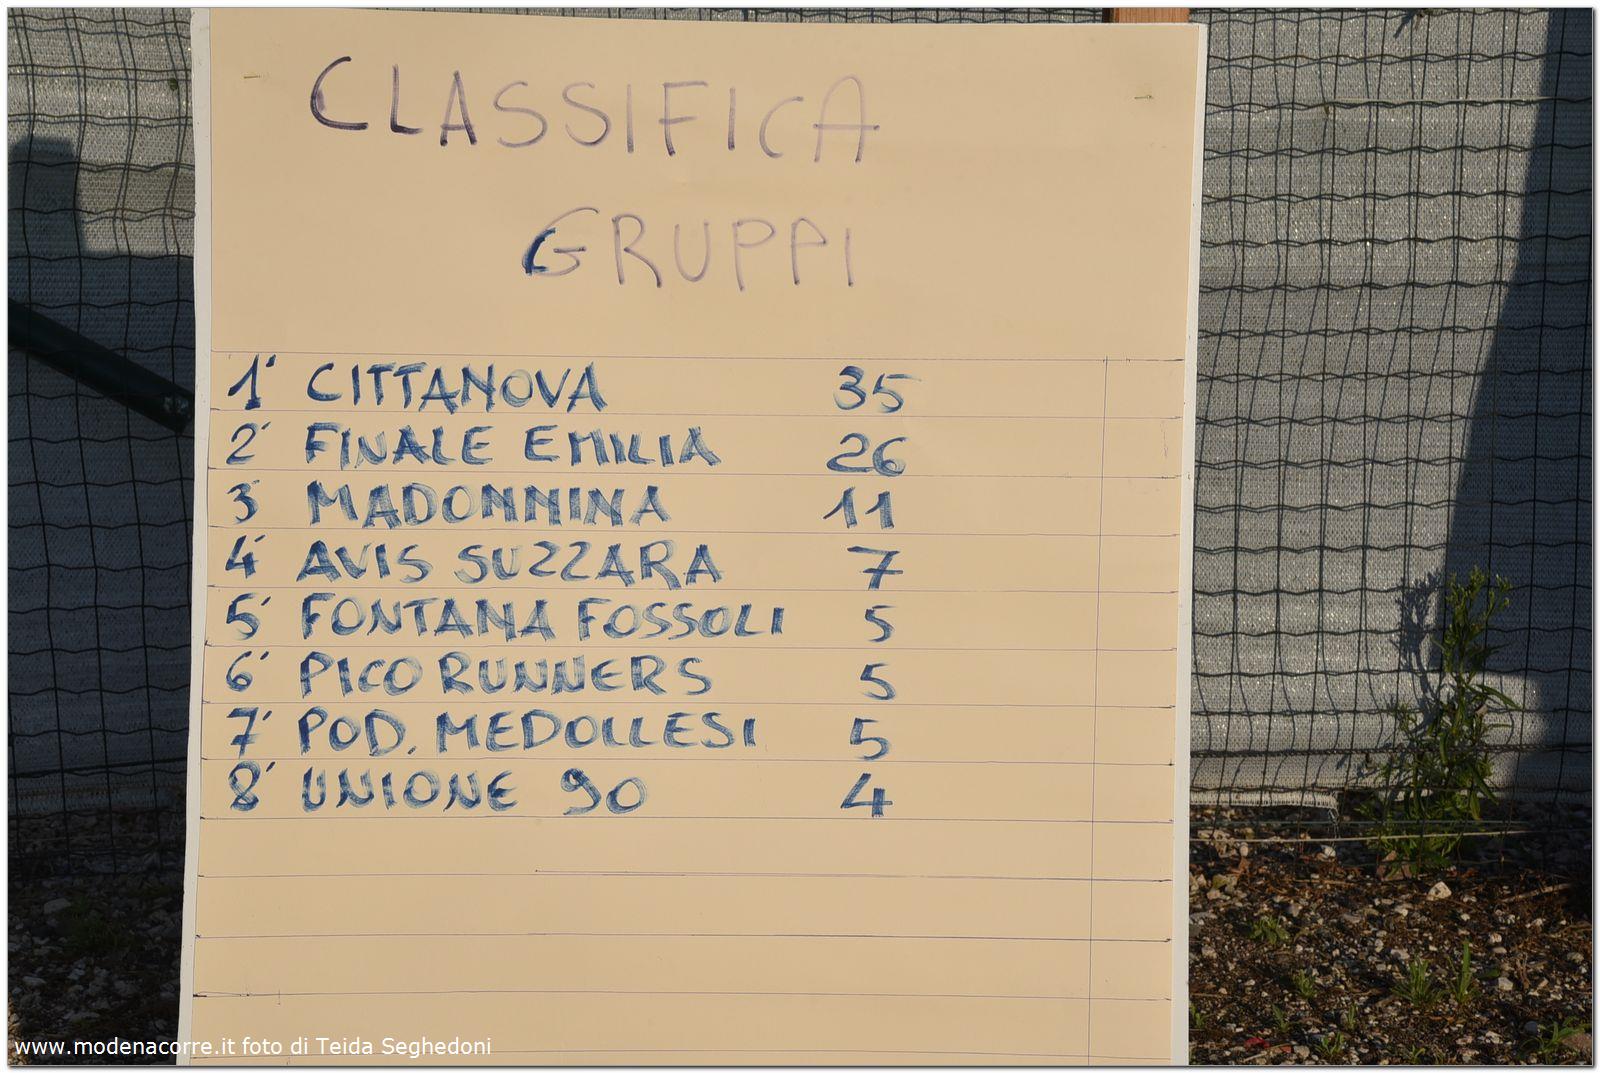 CLASSIFICA
GRUPPI
1° CITTANOVA 35
2° FINALE EMILIA 26
3° MADONNINA 11
4° AVIS SUZZARA 7
5° FONTANA FOSSOLI 5
6° PICO RUNNERS 5
7° POD. MEDOLLESI 5
8° UNIONE 90 4
www.modenacorre.it foto di Teida Seghedoni